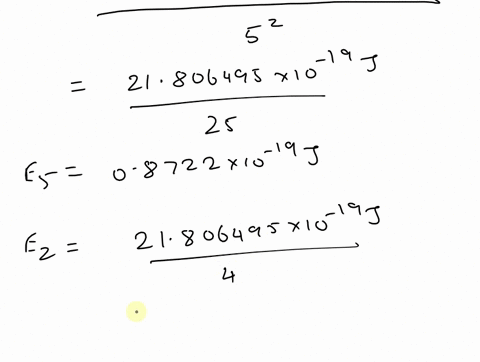 5²
= 21.806495 ×10⁻¹⁹ J
25
E₅ = 0.8722 ×10⁻¹⁹ J
E₂ = 21.806495 ×10⁻¹⁹ J
4